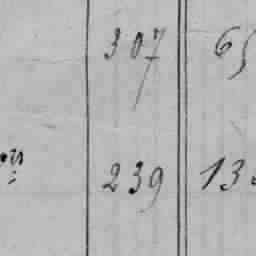 307 65
239 13